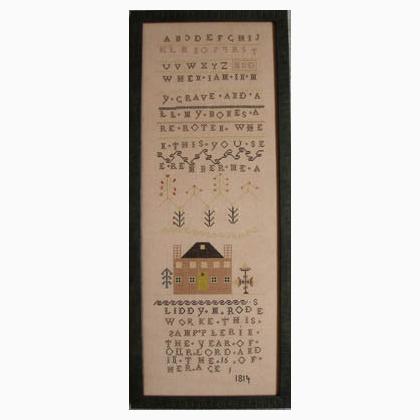 A B C D E F G H I J
K L M N O P Q R S T
U V W X Y Z
WHEN · I AM · IN · M
Y · GRAVE · AND · A
LL · MY · BONES · A
RE · ROTEN · WHE
N · THIS · YOU · SE
E · REMEMBER · ME · A
S
LIDDY · M · RODE
WORKE · THIS ·
SAMPPLER IN ·
THE · YEAR · OF ·
OUR LORD · AND
IN · THE · 15 · OF ·
HER AGE
1814